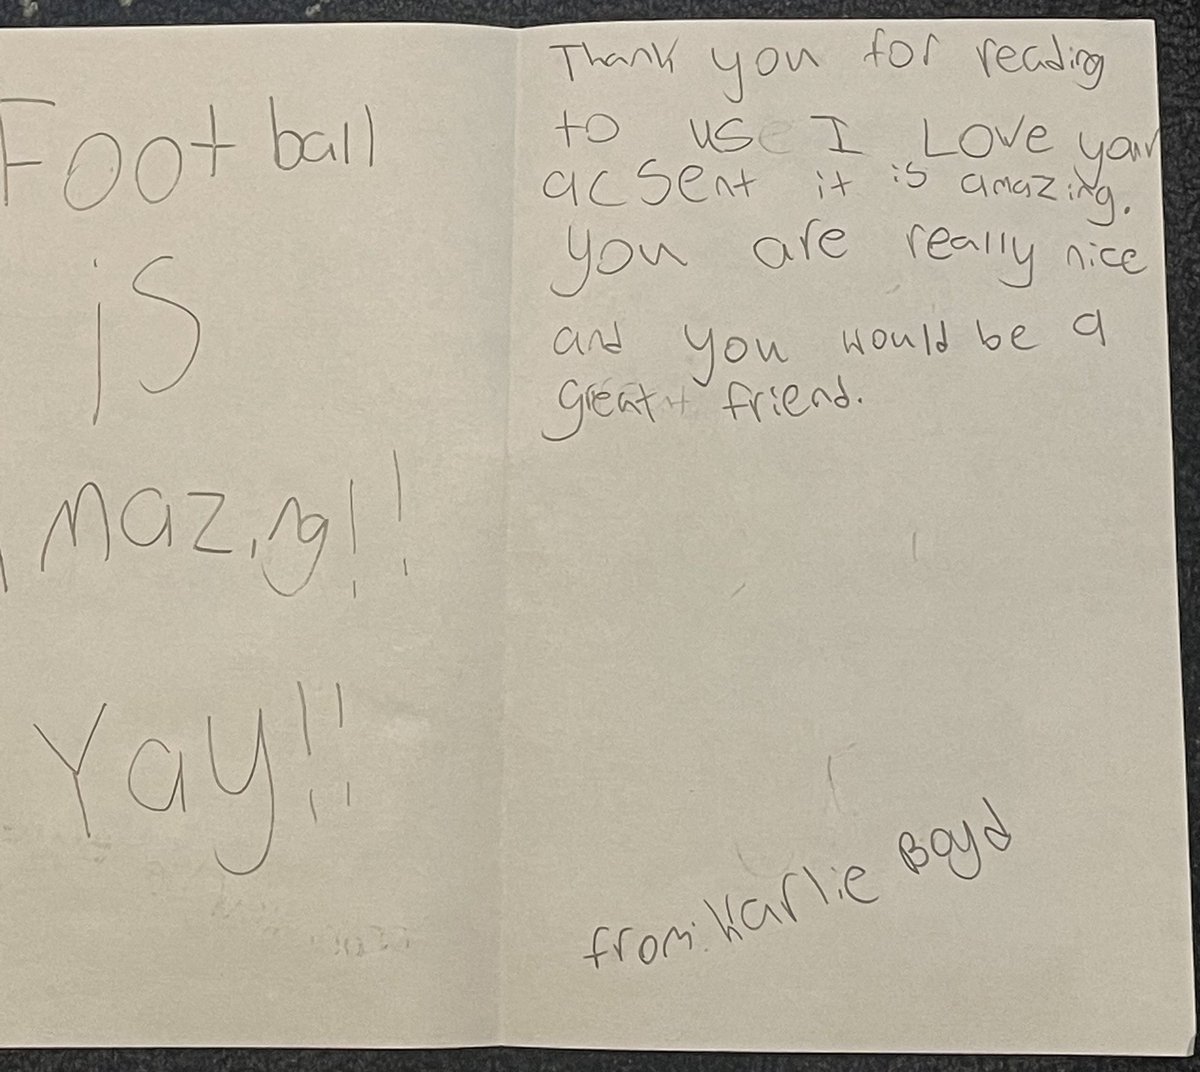 Football
is
Amazing!!
Yay!!
Thank you for reading
to us I Love your
acsent it is amazing.
you are really nice
and you would be a
great friend.
from: Karlie Boyd